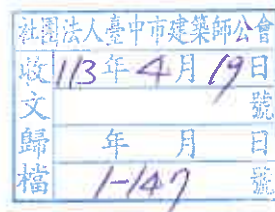 社團法人臺中市建築師公會
收文歸檔
113年4月19日
號
年 月 日
1-147 號